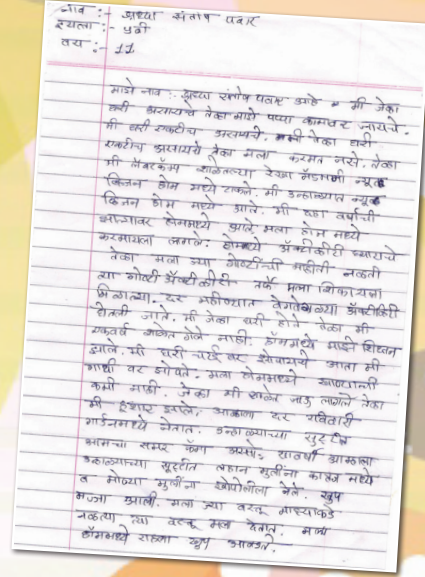 नाव :- संध्या संतोष पवार
इयत्ता :- ५वी
वय :- 11
माझे नाव :- संध्या संतोष पवार आहे. मी जेका
घरी असायचे तेका माझे पप्पा कामावर जायचे.
मी घरी एकटीच असायचे. मी तेका घरी
एकटीच असायचे तेका मला करमत नसे. तेका
मी लेबरकॅम्प शाळेतल्या रेखा मॅडमनी न्यू
व्हिजन होम मध्ये टाकले. मी उन्हाळ्यात न्यू
व्हिजन होम मध्ये आले. मी वर्षाची
होममध्ये आले. मला होम मध्ये
करमायला लागले. होममध्ये अ‍ॅक्टीव्हीटी घ्यायचे
तेका मला ज्या गोष्टींची माहीती नव्हती
त्या गोष्टी अ‍ॅक्टीव्हीटी तर्फे मला शिकायला
मिळाल्या. दर महीन्यात वेगवेगळ्या अ‍ॅक्टीव्हीटी
घेतली जाते. मी जेका घरी होते तेका मी
एकवर्ष शाळेत गेले नाही. होममध्ये माझे शिक्षन
झाले. मी घरी वर झोपायचे आता मी
गादी वर झोपते. मला होममध्ये खाण्याची
कमी नाही. जेका मी शाळेत जाऊ लागले तेका
मी हुशार झाले. आम्हाला दर रविवारी
गार्डनमध्ये नेतात. उन्हाळ्याच्या सुट्टीत
आमचा समर कॅम्प असतो. यावर्षी आम्हाला
उन्हाळ्याच्या सुट्टीत लहान मुलींना मध्ये
व मोठ्या मुलींना खोपोलीला नेले. खुप
मज्जा आली. मला ज्या वस्तू माझ्याकडे
नव्हत्या त्या वस्तू मला देतात. मला
होममध्ये राहला खुप आवडते.